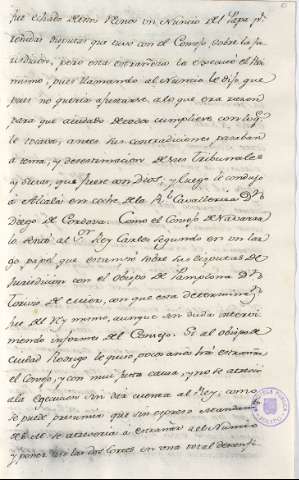 fue echado destos Reinos un Nuncio del Papa p.r
reñidas disputas que tuvo con el Consejo sobre la Ju-
risdicion, pero esta extrañeza la executó el Rei
mismo, pues llamando al Nuncio le dijo que
pues no queria ajustarse a lo que era razon
para que cuidado de cada cumpliese con lo q.e
le tocava, antes sus contradiciones pasaban
a tema, y determinacion de sus Tribunales
y otras, que fuese con Dios, y luego le condujo
a Alcalá en coche de la R.l Cavalleriza D.n
Diego de Cordova. Como el Consejo de Navarra
lo dijo al S.or Rey Carlos Segundo en un lar-
go papel que estampó sobre las disputas de
Jurisdicion con el Obispo de Pamplona D.n
Toribio de, con que esta determinaz.n
fue del Rey mismo, aunque sin duda intervi-
niendo informes del Consejo. Si al Obispo de
Ciudad Rodrigo le quiso, pocos años há extrañar
el Consejo, y con muy justa causa, y no se atrevió
a la egecucion sin dar cuenta al Rey, como
se puede presumir que sin expreso mandamiento
de S. M. se atreveria a extrañar a el Nuncio
y poner en las dos Cortes en una total desconfi-